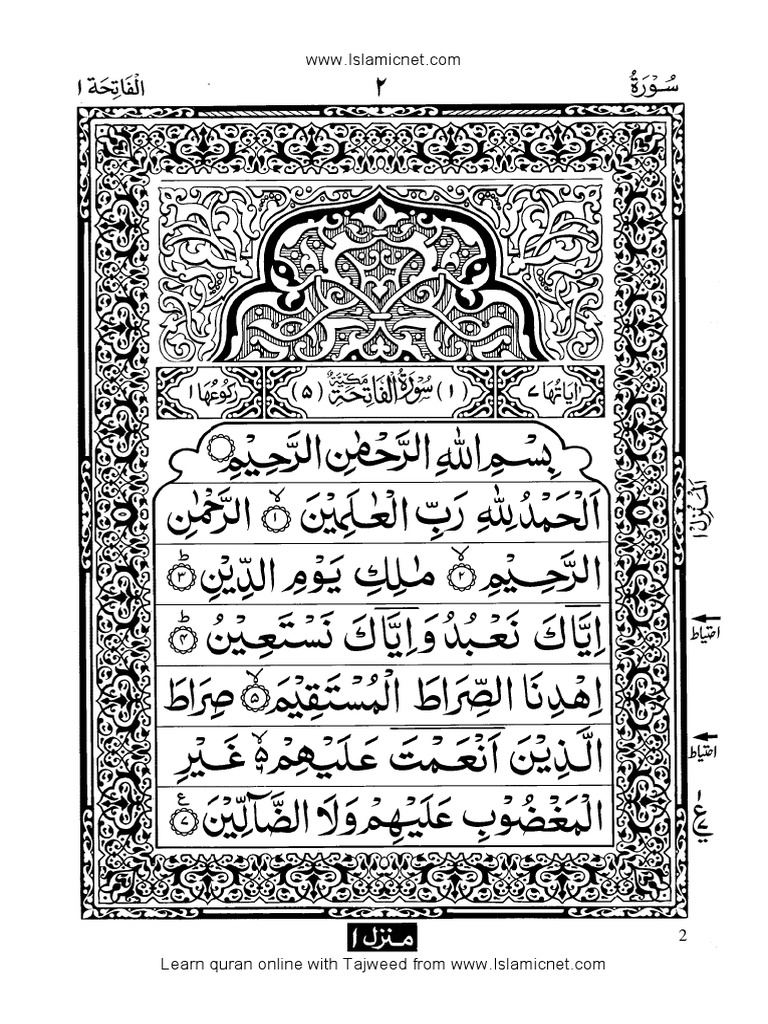 www.Islamicnet.com
سُوْرَةُ ٢ الْفَاتِحَة ١
اٰيَاتُهَا ٧ (١) سُوْرَةُ الْفَاتِحَةِ مَكِّيَّةٌ (٥) رُكُوْعُهَا ١
بِسْمِ اللّٰهِ الرَّحْمٰنِ الرَّحِيْمِ
اَلْحَمْدُ لِلّٰهِ رَبِّ الْعٰلَمِيْنَ ۙ﴿١﴾ الرَّحْمٰنِ
الْمَنْزِل ١
الرَّحِيْمِ ۙ﴿٢﴾ مٰلِكِ يَوْمِ الدِّيْنِ ؕ﴿٣﴾
اِيَّاكَ نَعْبُدُ وَاِيَّاكَ نَسْتَعِيْنُ ؕ﴿٤﴾
احتياط
اِهْدِنَا الصِّرَاطَ الْمُسْتَقِيْمَ ۙ﴿٥﴾ صِرَاطَ
الَّذِيْنَ اَنْعَمْتَ عَلَيْهِمْ ۙ۵ غَيْرِ
احتياط
الْمَغْضُوْبِ عَلَيْهِمْ وَلَا الضَّآلِّيْنَ ﴿٧﴾ ع
ع
منزل ١
2
Learn quran online with Tajweed from www.Islamicnet.com